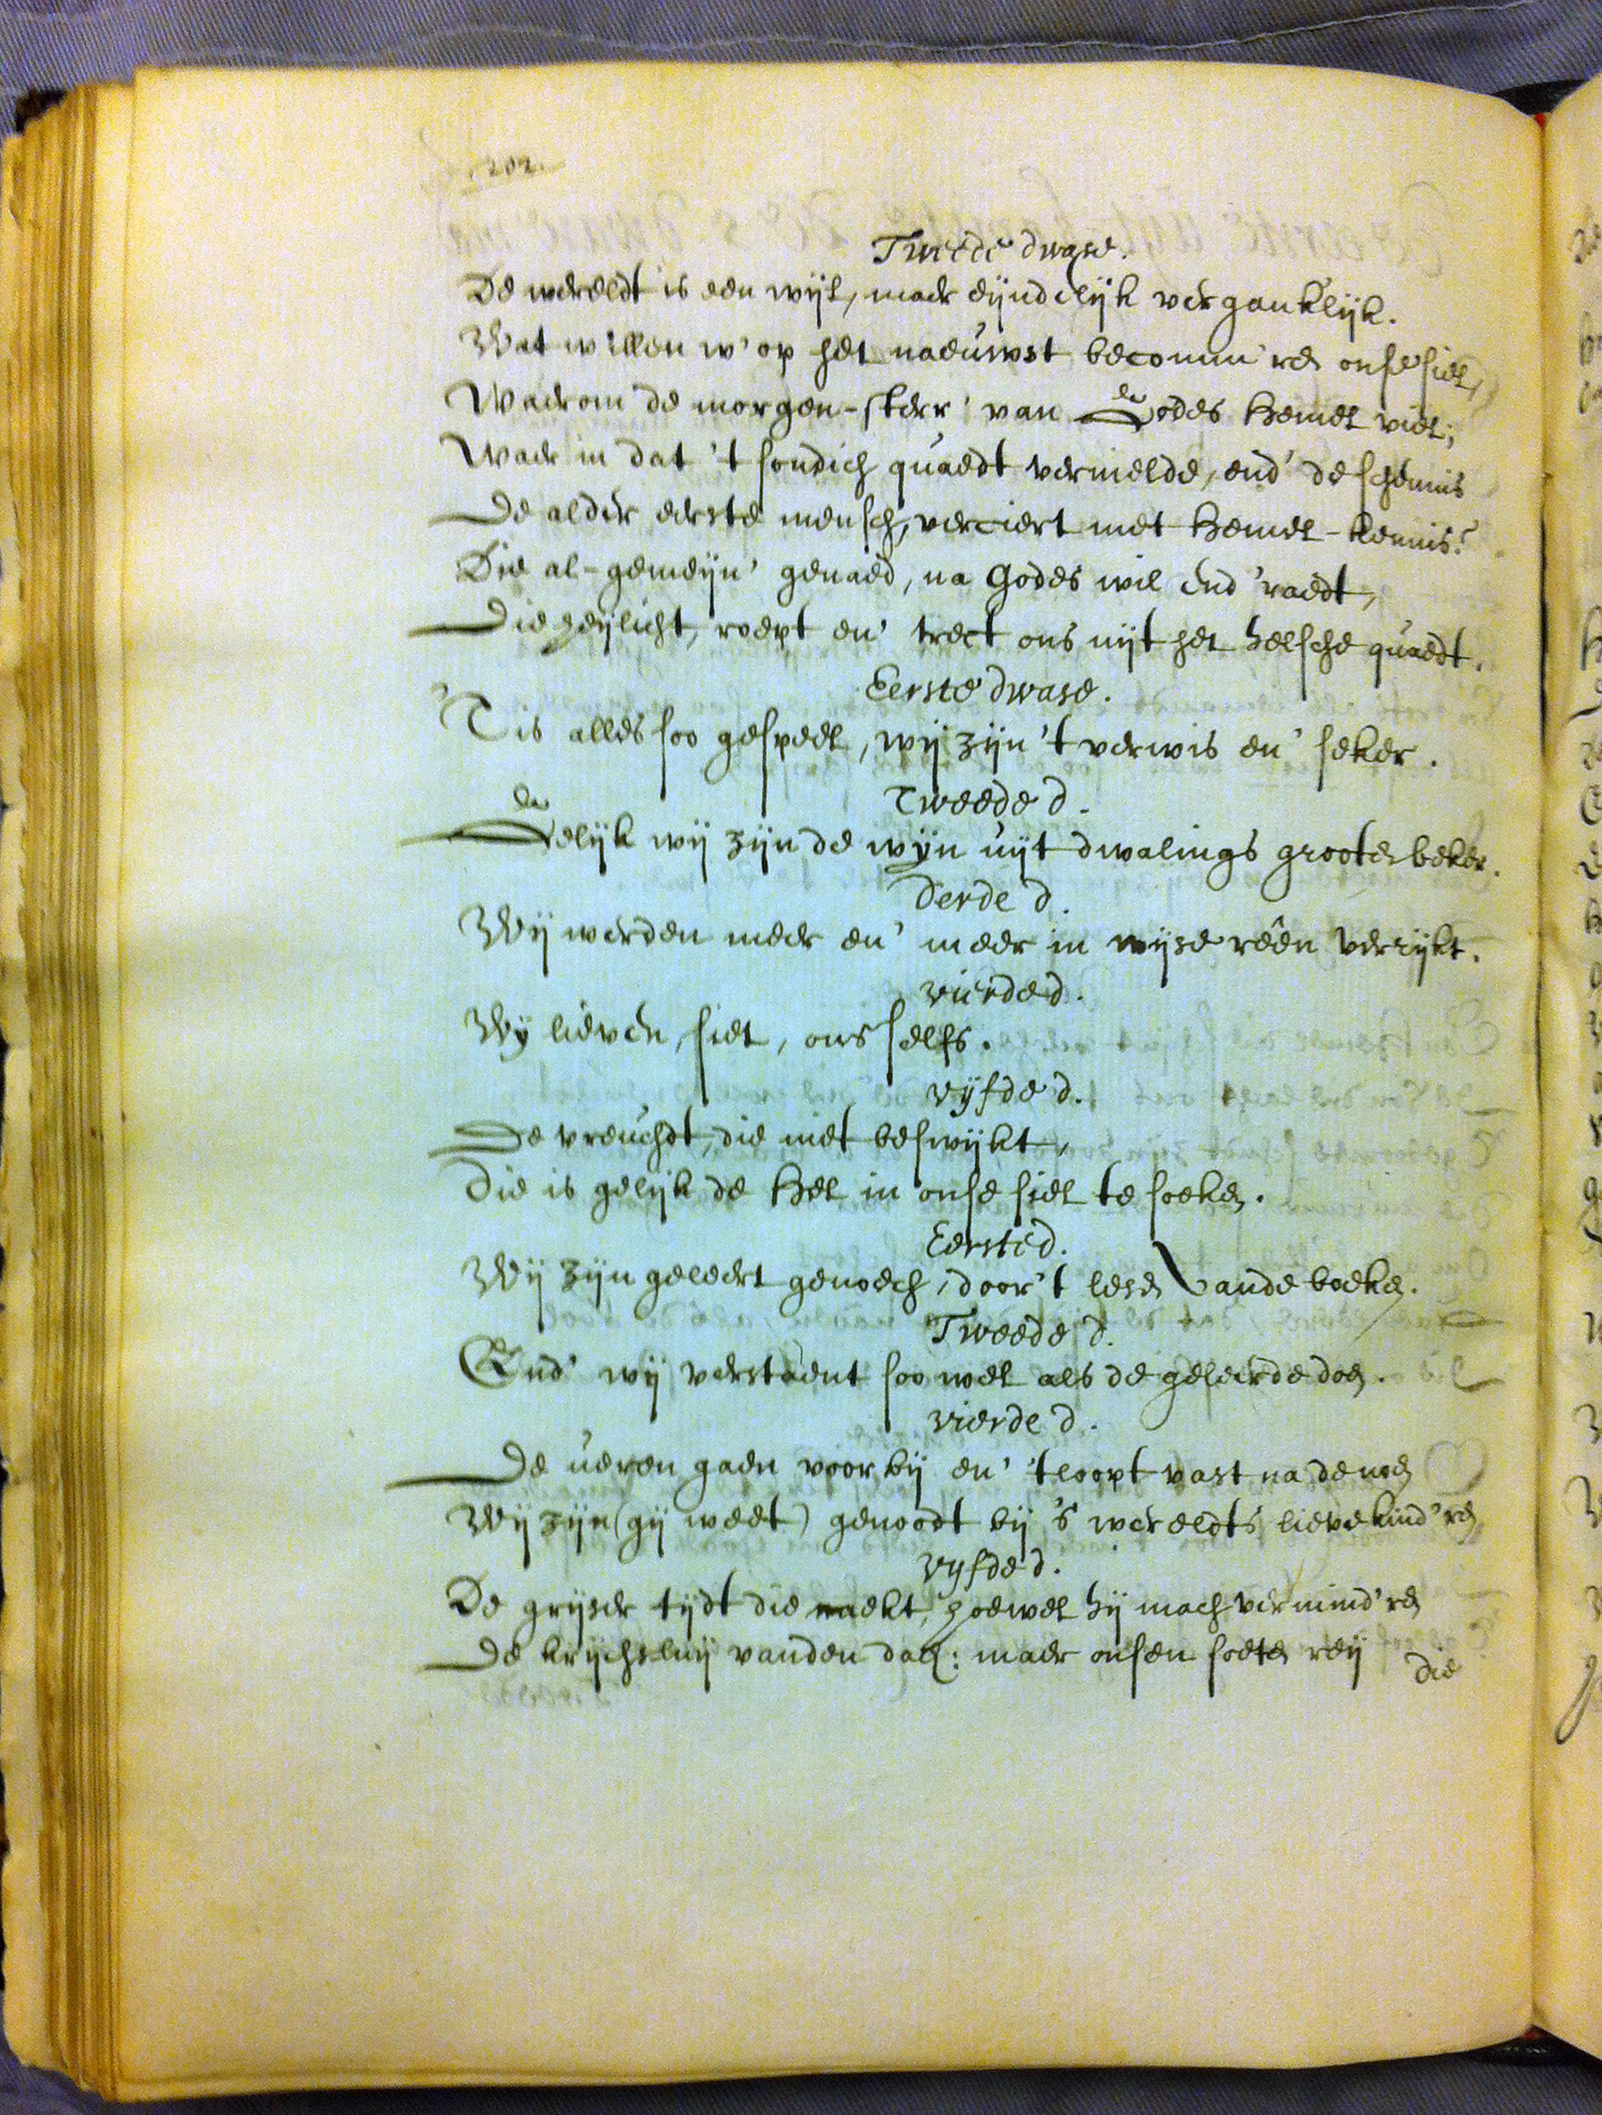 202.
Tweede dwase.
De wereldt is een wijl, maer eijndelijk verganklijk.
Wat willen w' op het naeuwst becomm'ren onse siel,
Waerom de morgen-sterr' van Godes hemel viel;
Waer in dat 't sondich quaedt vermelde, end' de schennis
De alder eerste mensch, verciert met hemel-kennis?
Die al-gemeijn' genaed, na Godes wil end' raedt,
Die heijlicht, roept en' trect ons uijt het helsche quaedt.
Eerste dwase.
'Tis alles soo gespeel, wij zijn 't verwis en' seker.
Tweede d.
Gelijk wij zijn de wijn uijt dwalings grooten beker.
Derde d.
Wij werden meer en' meer in wijse reên verrijkt.
Vierde d.
Wij lieven, siet, ons selfs.
Vijfde d.
De vreuchdt, die niet beswijkt,
Die is gelijk de hel in onse siel te soeken.
Eerste d.
Wij zijn geleert genoech, door 't lesen vande boeken.
Tweede d.
End' wij verstaent soo wel als de geleerde doen.
Vierde d.
De ueren gaen voorbij en' 't loopt vast na de noen
Wij zijn (gij weet) genoodt bij 's wereldts lieve kind'ren
Vijfde d.
De grijser tijdt die naekt, hoewel hij mach vermind'ren
De krijchsluij vanden dach: maer onsen soeten reij
Die